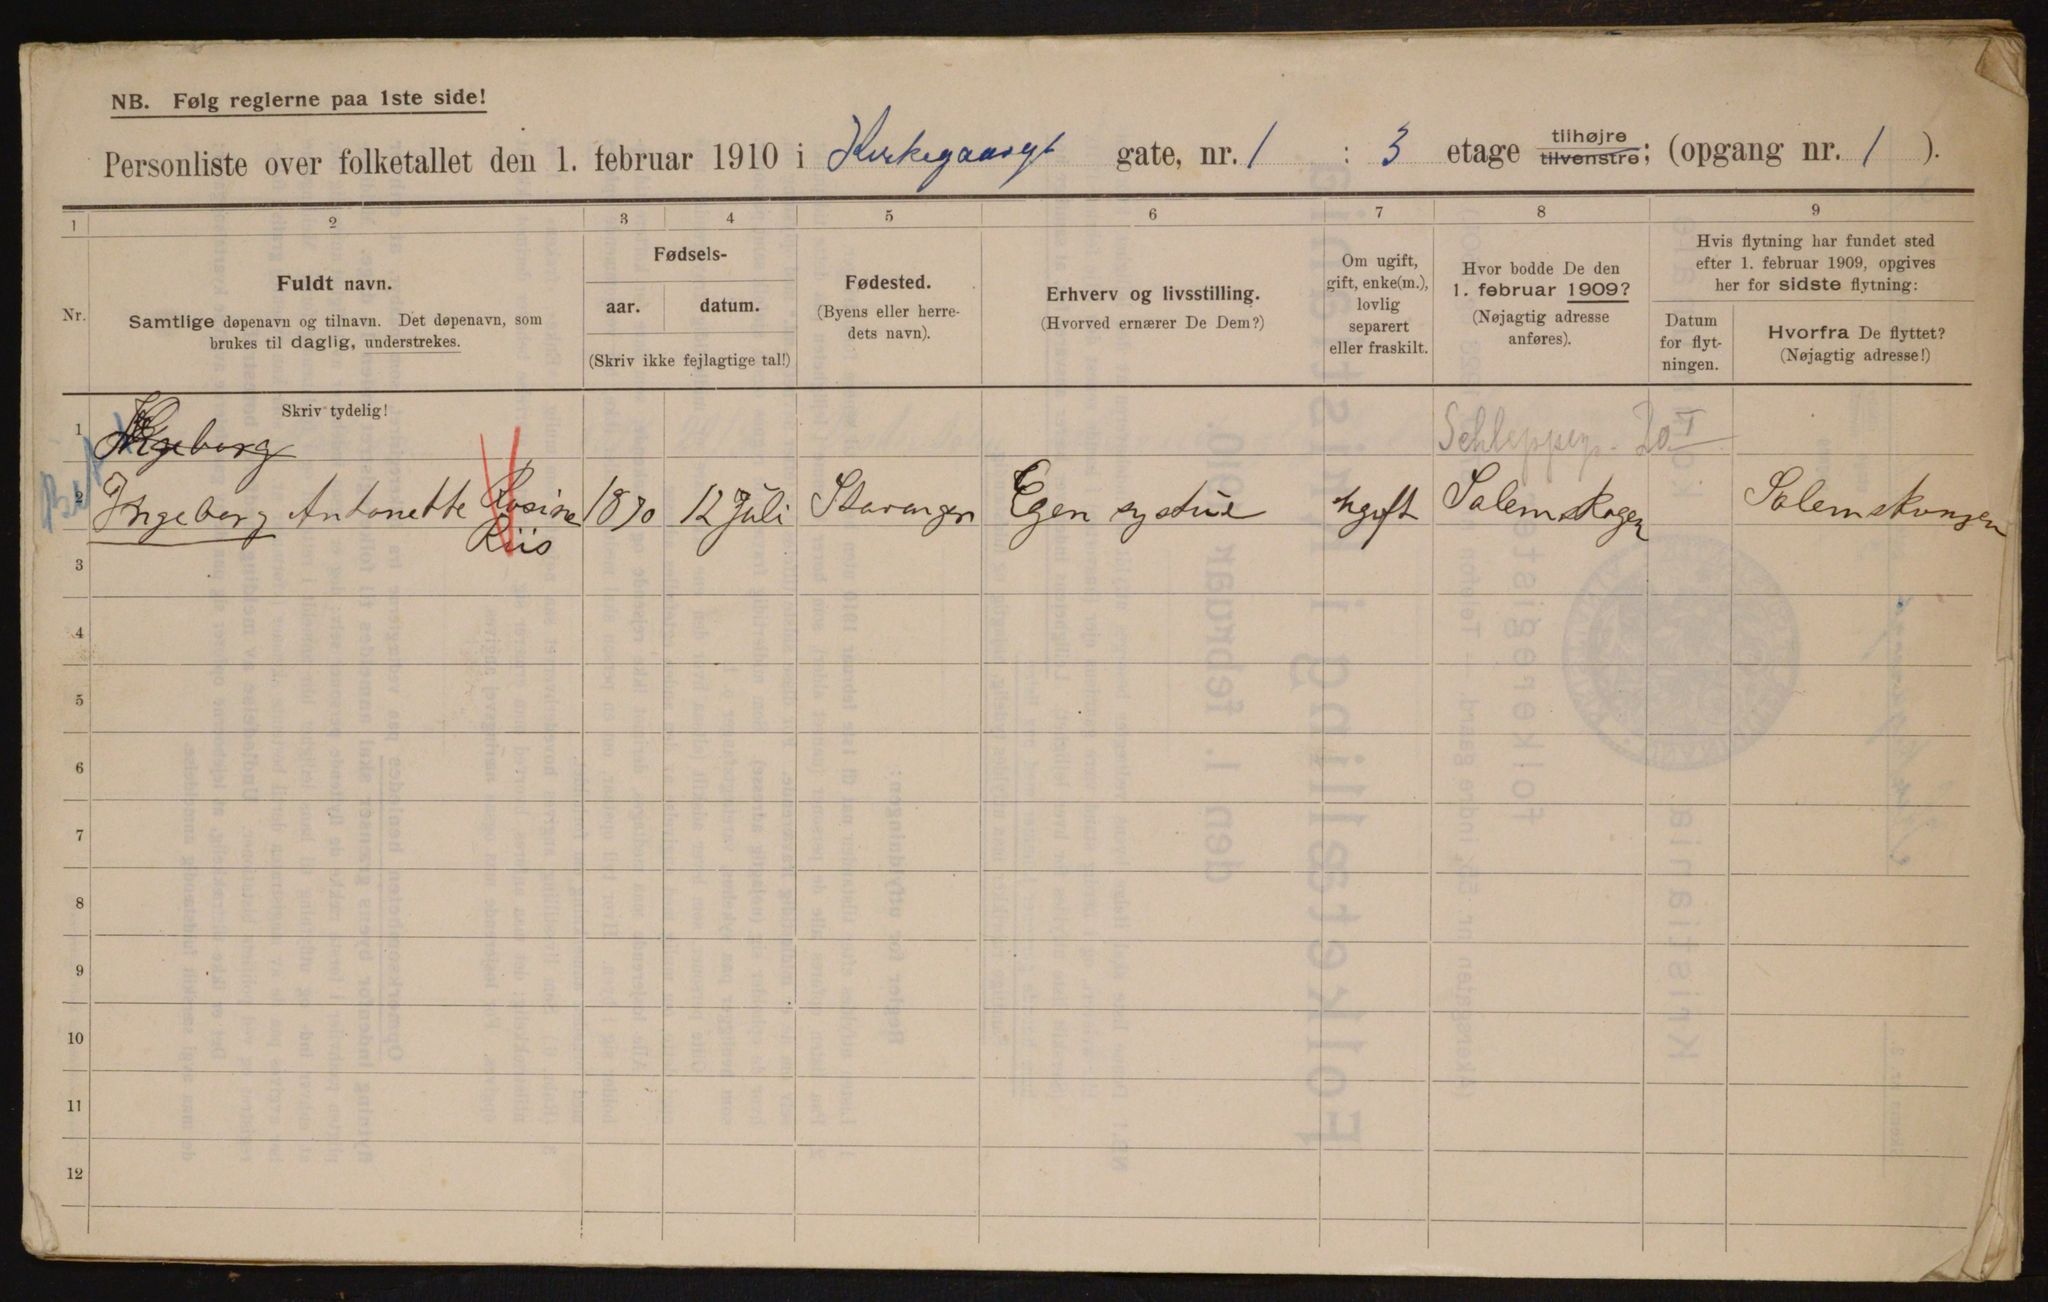 NB. Følg reglerne paa 1ste side!
Personliste over folketallet den 1. februar 1910 i Kirkegaardsgt gate, nr. 1 : 3 etage tilhøjre tilvenstre; (opgang nr. 1 ).
1 2 3 4 5 6 7 8 9
Nr.
Fuldt navn.
Samtlige døpenavn og tilnavn. Det døpenavn, som
brukes til daglig, understrekes.
Fødsels-
aar. datum.
(Skriv ikke fejlagtige tal!)
Fødested.
(Byens eller herre-
dets navn).
Erhverv og livsstilling.
(Hvorved ernærer De Dem?)
Om ugift,
gift, enke(m.),
lovlig
separert
eller fraskilt.
Hvor bodde De den
1. februar 1909?
(Nøjagtig adresse
anføres).
Hvis flytning har fundet sted
efter 1. februar 1909, opgives
her for sidste flytning:
Datum
for flyt-
ningen.
Hvorfra De flyttet?
(Nøjagtig adresse!)
Skriv tydelig!
1 Ingeborg
2 Ingeborg Antonette Rosine 1870 12 Juli Stavanger Egen systue ugift
Riis
3
4
5
6
7
8
9
10
11
12